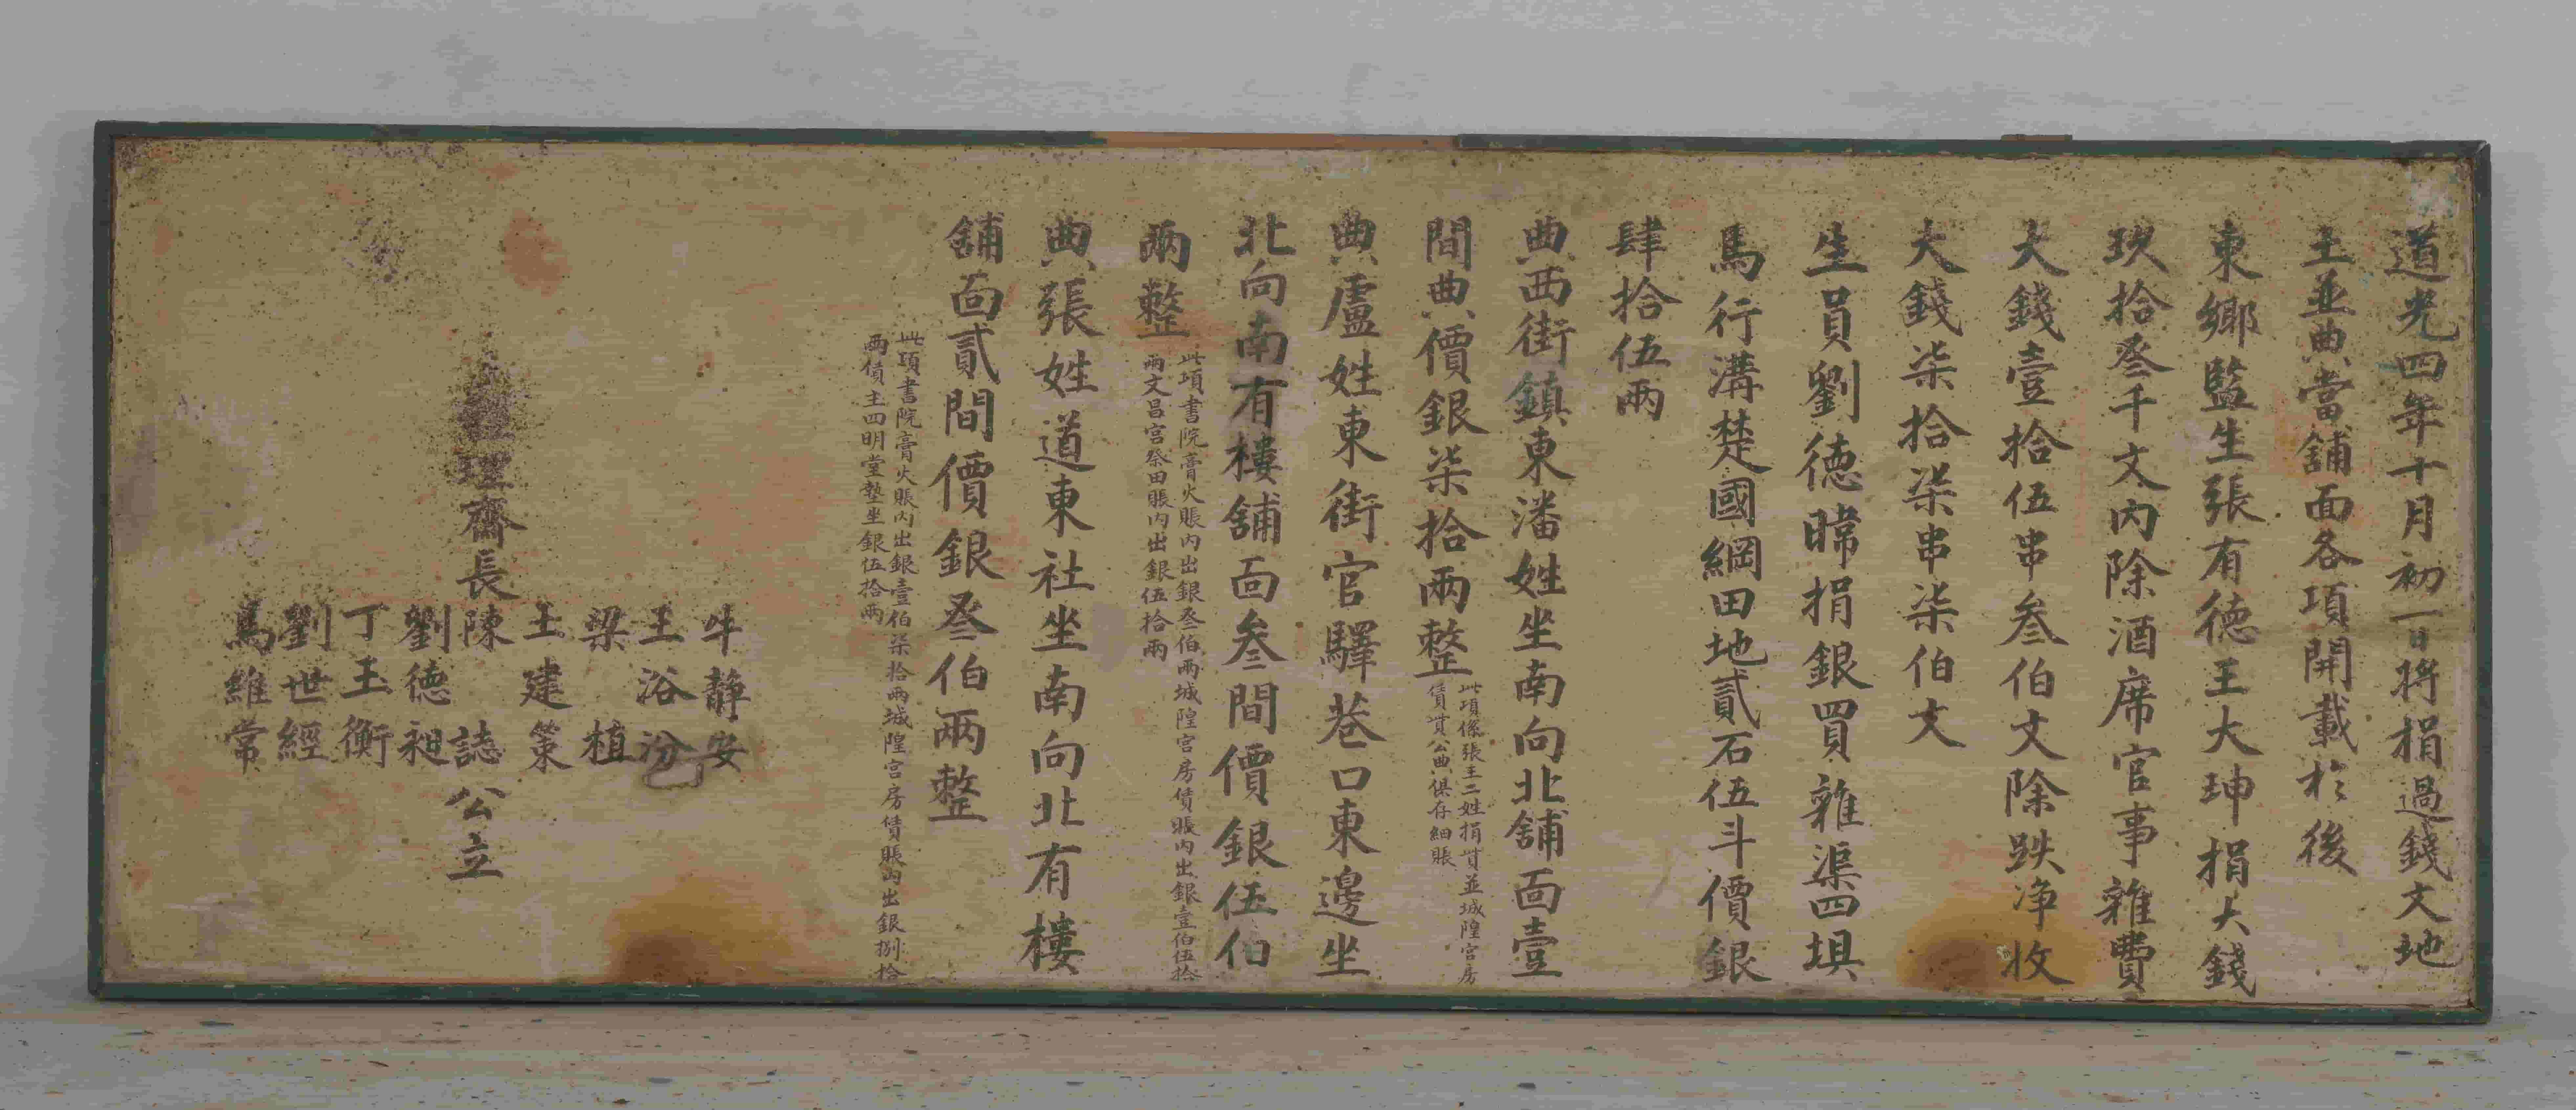 道光四年十月初一日將捐過錢文地
土並典當舖面各項開載於後
東鄉監生張有德王大珅捐大錢
玖拾叁千文內除酒席官事雜費
大錢壹拾伍串叁伯文除跌净收
大錢柒拾柒串柒伯文
生員劉德暲捐銀買雜渠四埧
馬行溝楚國綱田地貳石伍斗價銀
肆拾伍兩
典西街鎮東潘姓坐南向北舖面壹
間典價銀柒拾兩整
此項係張王二姓捐貲並城隍宮房
賃貲公典俱存細賬
典盧姓東街官驛巷口東邊坐
北向南有樓舖面叁間價銀伍伯
兩整
此項書院膏火賬內出銀叁伯兩城隍宮房賃賬內出銀壹伯伍拾
兩文昌宮祭田賬內出銀伍拾兩
典張姓道東社坐南向北有樓
舖面貳間價銀叁伯兩整
此項書院膏火賬內出銀壹伯柒拾兩城隍宮房賃賬內出銀捌拾
兩債主四明堂墊坐銀伍拾兩
理齋長
牛靜安
王浴汾
梁植
王建策
陳誌
劉德昶
丁玉衡
劉世經
馬維常
公立